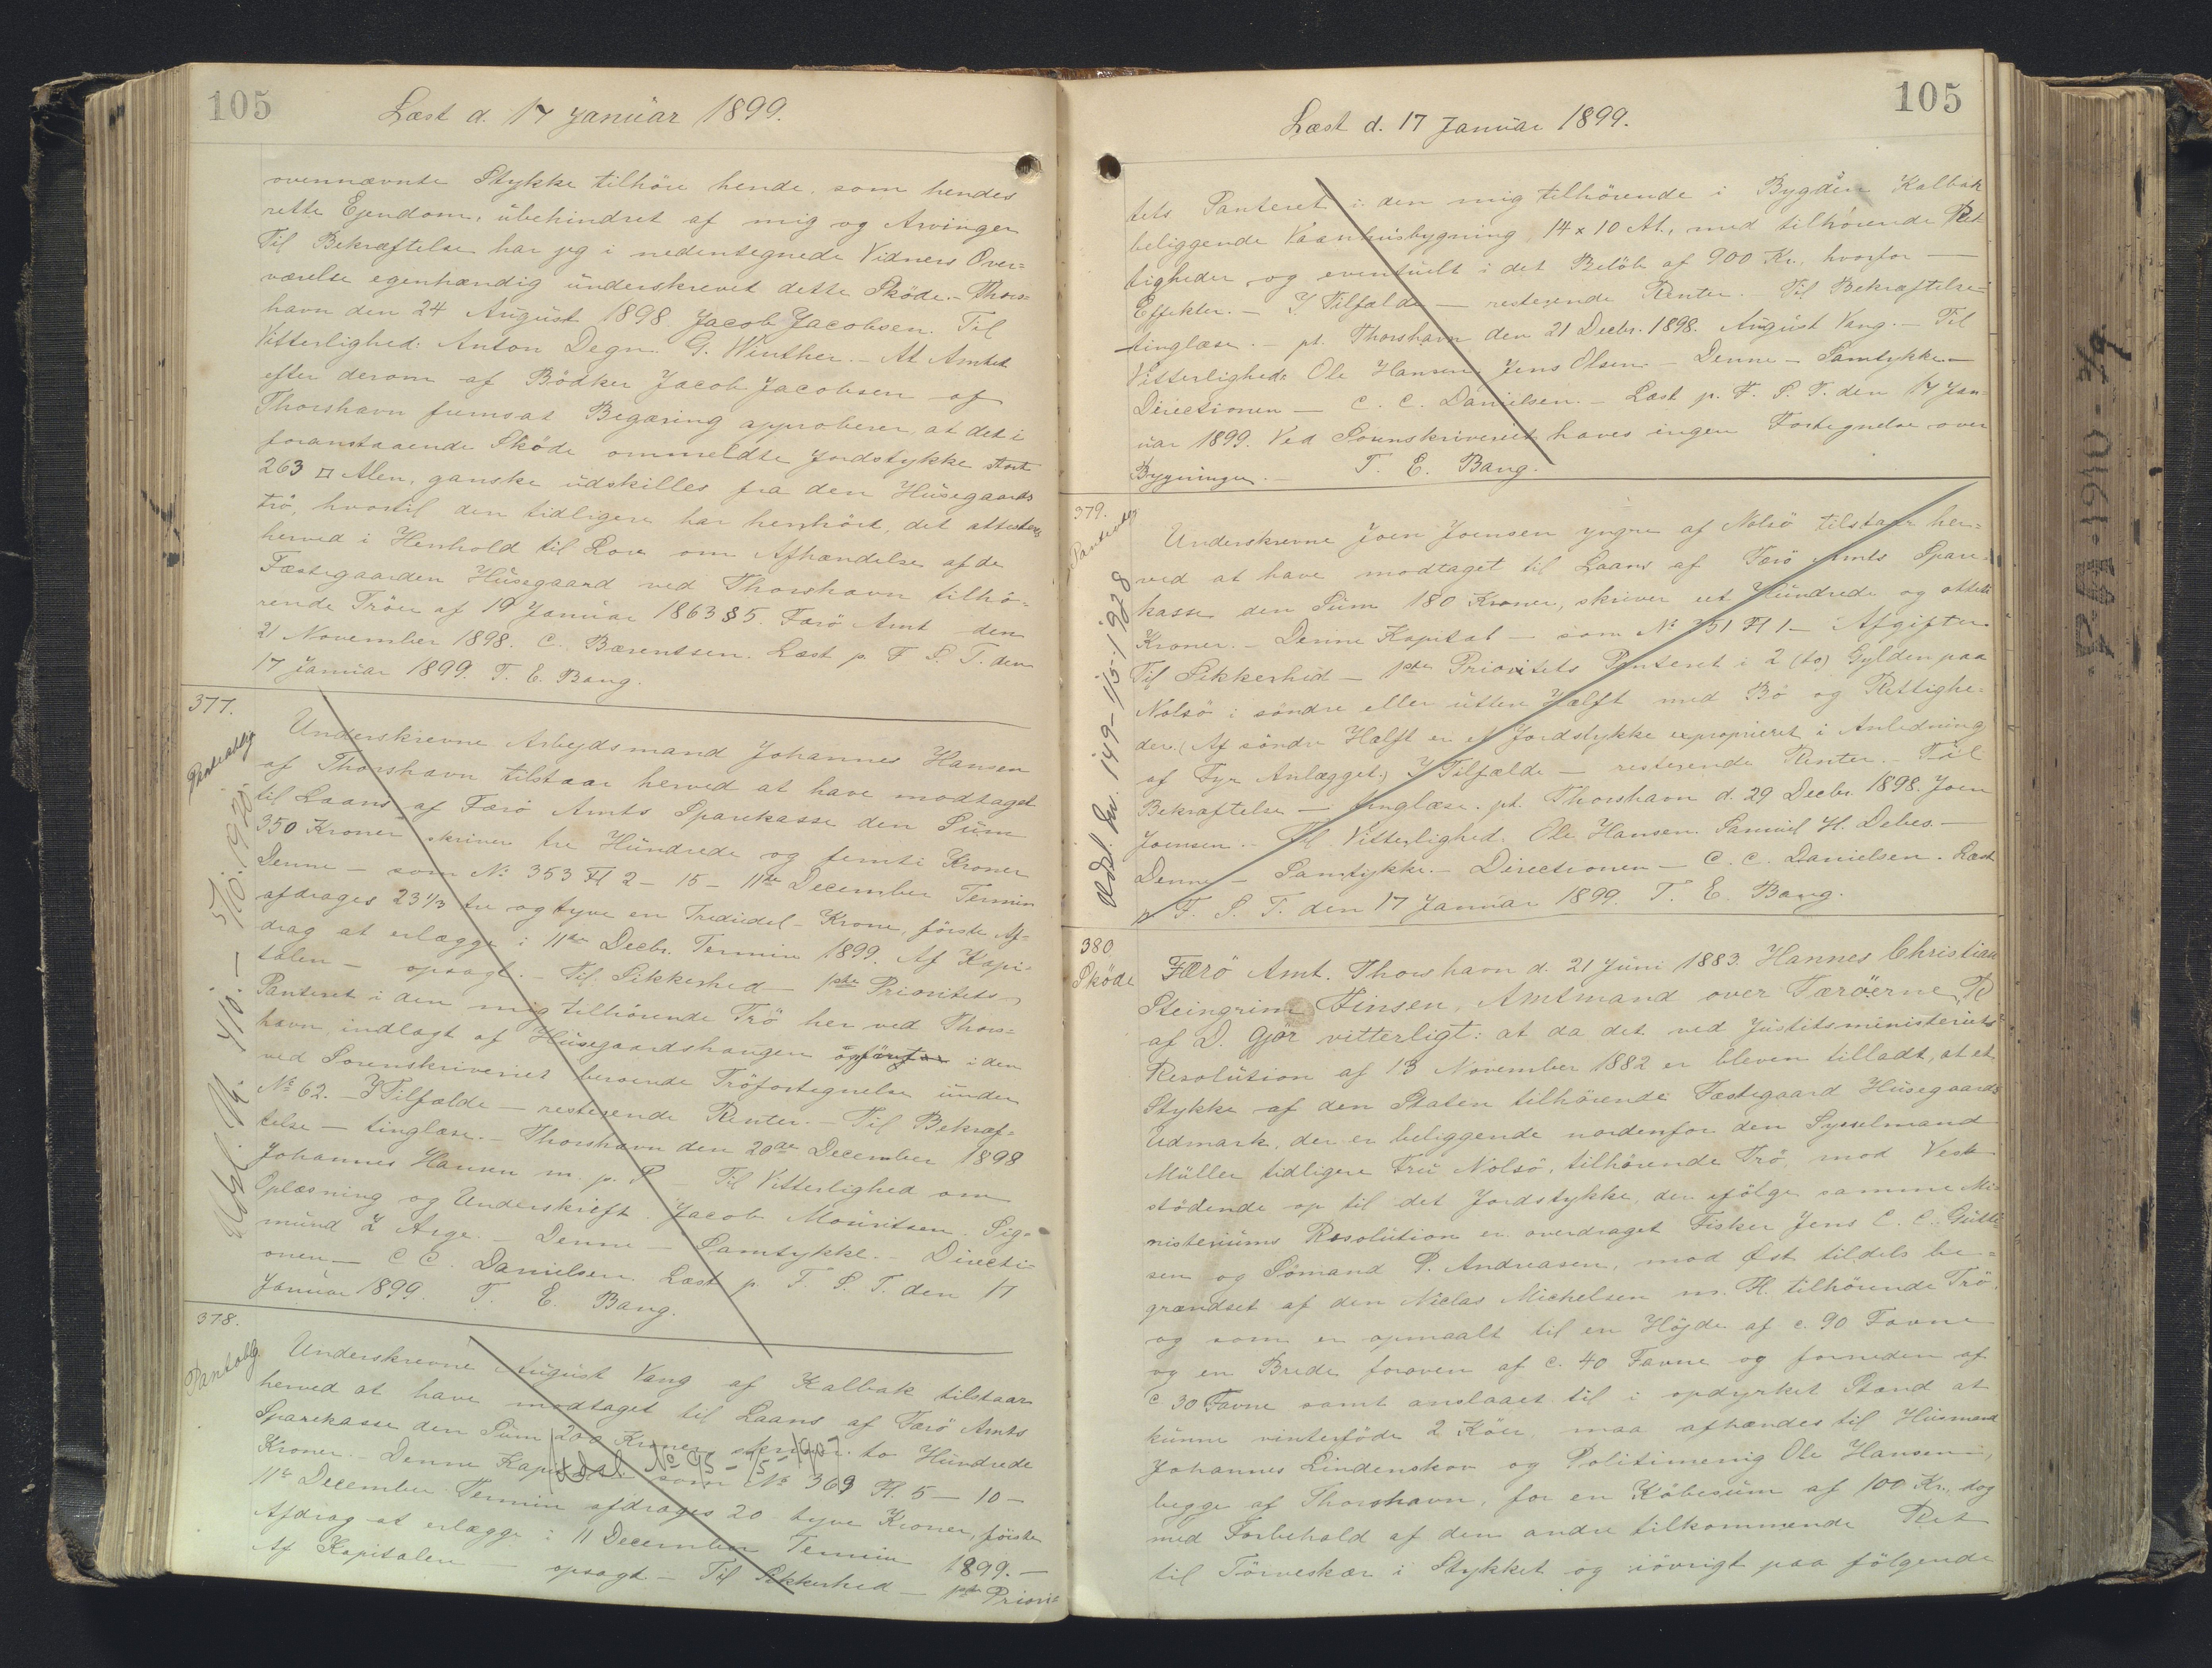 105
Læst d. 17 Januar 1899.
ovennævnte Stykke tilhöre hende som hendes
rette Ejendom, ubehindret af mig og Arvinger
Til Bekræftelse har jeg i nedentegnede Vidners Over-
værelse egenhændig underskrevet dette Sköde. - Thors-
havn den 24 August 1898. Jacob Jacobsen. Til
Vitterlighed: Anton Degn. G. Winther. - At Amtet
efter derom af Bödker Jacob Jacobsen af
Thorshavn fremsat Begæring approberer, at det i
foranstaaende Sköde ommeldte Jordstykke stort
263 □ Alen, ganske udskilles fra den Husegaards
trö, hvortil den tidligere har henhört, det attesteres
herved i Henhold til Lov om Afhændelse af de
Fæstegaarden Husegaard ved Thorshavn tilhö-
rende Tröer af 19 Januar 1863 § 5. Færö Amt den
21 November 1898. C. Bærentsen. Læst p. F. S. T. den
17 Januar 1899. T. E. Bang.
377.
Panteoblig
Udsl. 4/10 - 5/10 1920.
Underskrevne Arbejdsmand Johannes Hansen
af Thorshavn tilstaar herved at have modtaget
til Laans af Færö Amts Sparekasse den Sum
350 Kroner skriver tre Hundrede og femti Kroner
Denne - som No 353 Fl 2 - 15 - 11te December Termin
afdrages 23 1/3 tre og tyve en Trediedel - Krone, förste Af-
drag at erlægge i 11te Decbr. Termin 1899. Af Kapi-
talen - opsagt. - Til Sikkerhed - 1ste Prioritets
Panteret i den mig tilhörende Trö her ved Thors-
havn, indlagt af Husegaardshaugen opfört i den
ved Sorenskriveriet beroende Tröfortegnelse under
No 62. - I Tilfælde - resterende Renter. - Til Bekræf-
telse - tinglæse. - Thorshavn den 20de December 1898
Johannes Hansen m. p. P - Til Vitterlighed om
Oplæsning og Underskrift. Jacob Mouritsen. Sig-
mund Z Arge. - Denne - Samtykke. - Directi-
onen - C C. Danielsen. Læst p. F. S. T. den 17
Januar 1899. T. E. Bang.
378.
Pantoblg.
Underskrevne August Vang af Kalbak tilstaar
herved at have modtaget til Laans af Færö Amts
Sparekasse den Sum 200 Kroner, skriver to Hundrede
Udsl. No 95 - 1907
Kroner. - Denne Kapital - som No 369 Fl. 5 - 10 -
11te December Termin afdrages 20 tyve Kroner, förste
Afdrag at erlægge i 11 December Termin 1899. -
Af Kapitalen - opsagt - Til Sikkerhed - 1ste Priori-
105
Læst d. 17 Januar 1899.
tets Panteret i den mig tilhörende i Bygden Kalbak
beliggende Vaaanhusbygning, 14 x 10 Al., med tilhörende Ret
tigheder og eventuelt i det Belöb af 900 Kr., hvorfor -
Effekter. - I Tilfælde - resterende Renter. - Til Bekræftelse
tinglæse. - pt. Thorshavn den 21 Decbr. 1898. August Vang. - Til
Vitterlighed: Ole Hansen, Jens Olsen. - Denne - Samtykke -
Directionen - C. C. Danielsen. - Læst p. F. S. T. den 17 Jan-
uar 1899. Ved Sorenskriveriet haves ingen Fortegnelse over
Bygninger. - T. E. Bang.
379.
Panteoblig
Udsl. No. 149 - 1/5 - 1928
Underskrevne Joen Joensen yngre af Nolsö tilstaar her-
ved at have modtaget til Laans af Færö Amts Spare-
kasse den Sum 180 Kroner, skriver et Hundrede og otteti
Kroner. - Denne Kapital - som No 351 Fl 1 - Afgifter
Til Sikkerhed - 1ste Prioritets Panteret i 2 (to) Gylden paa
Nolsö i söndre eller uttre Hælft med Bö og Rettighe-
der. (Af söndre Hælft er et Jordstykke exproprieret i Anledning
af Fyr Anlægget.) I Tilfælde - resterende Renter - Til
Bekræftelse - tinglæse. pt. Thorshavn d. 29 Decbr. 1898. Joen
Joensen. - Til Vitterlighed. Ole Hansen. Samuel H. Debes. -
Denne - Samtykke. - Directionen - C. C. Danielsen. Læst
p F. S. T. den 17 Januar 1899. T. E. Bang.
380
Sköde
Færö Amt. Thorshavn d. 21 Juni 1883. Hannes Christian
Steingrim Finsen, Amtmand over Færöerne, R
af D. Gjör vitterligt: at da det ved Justitsministeriets
Resolution af 13 November 1882 er bleven tilladt, at et
Stykke af den Staten tilhörende Fæstegaard Husegaards
Udmark, der er beliggende nordenfor den Sysselmand
Müller tidligere Fru Nolsö, tilhörende Trö, mod Vest
stödende op til det Jordstykke, der ifölge samme Mi-
nisteriums Resolution er overdraget Fisker Jens C. C. Gutte
sen og Sömand P. Andreasen, mod Öst tildels be-
grændset af den Niclas Michelsen m. Fl. tilhörende Trö,
og som er opmaalt til en Höjde af c. 90 Favne
og en Brede foroven af c. 40 Favne og forneden af
c. 30 Favne samt anslaaet til i opdyrket Stand at
kunne vinterföde 2 Köer, maa afhændes til Husmand
Johannes Lindenskov og Politimenig Ole Hansen,
begge af Thorshavn, for en Köbesum af 100 Kr., dog
med Forbehold af den andre tilkommende Ret
til Törveskær i Stykket og iövrigt paa fölgende